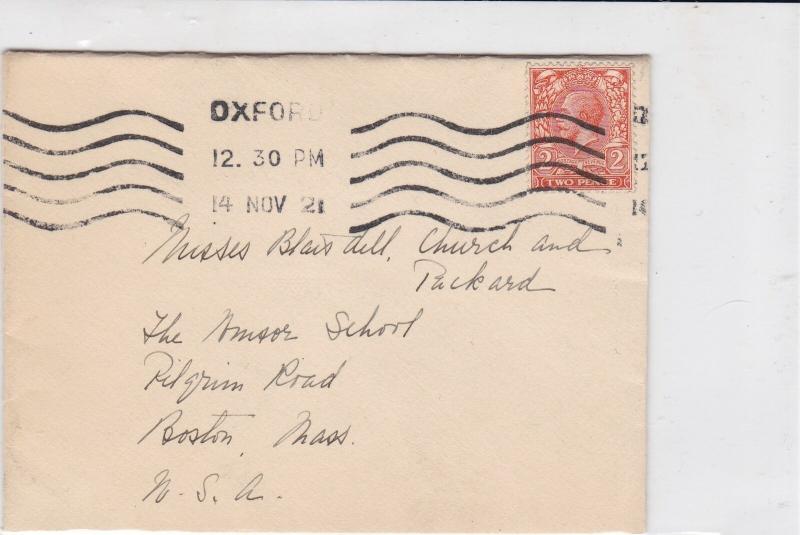 OXFORD
12. 30 PM
14 NOV 21
2 2
TWO PENCE
Misses Blaisdell, Church and
Packard
The Winsor School
Pilgrim Road
Boston, Mass.
U. S. A.